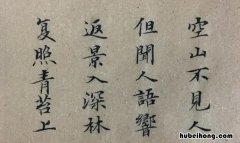 空山不見人
但聞人語響
返景入深林
复照青苔上
hubeihong.com